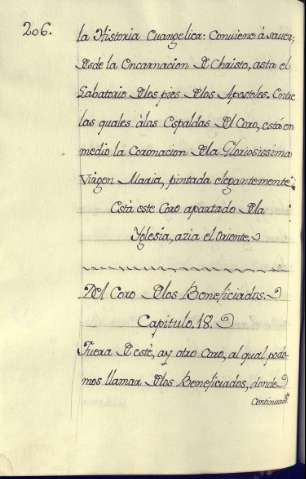 206.
la Historia Euangelica: Conuiene à sauer;
Desde la Encarnacion D Christo, asta el
Labatorio Dlos pies Dlos Apostoles. Entre
las quales àlas Espaldas Dl Coro, està en
medio la Coronacion Dla Gloriosissima
Virgen Maria, pintada elegantemente.
Està este Coro apartado Dla
Yglesia, azia el Oriente.
Del Coro Dlos Beneficiados.
Capitulo. 18.
Fuera D este, ay otro Coro, al qual pode-
mos llamar Dlos Beneficiados, donde